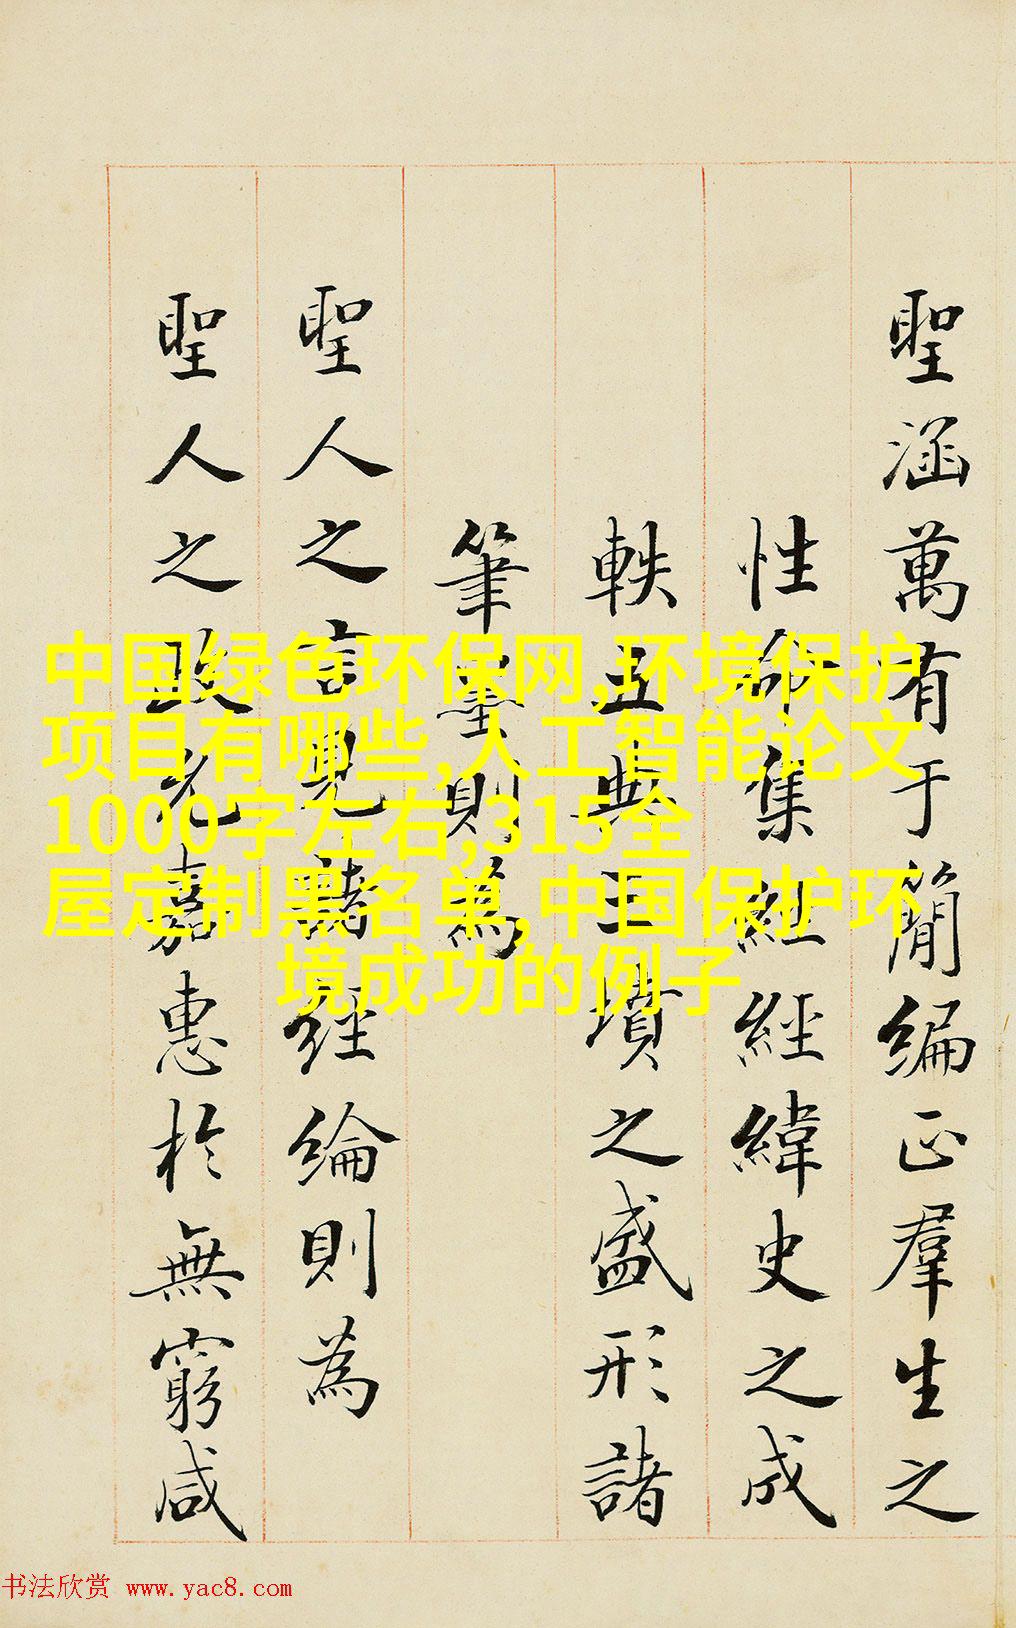 聖涵萬有于簡編正羣生之
性命集經經緯史之成
軼五典三墳之盛形諸
筆墨則為
聖人之言見諸經綸則為
聖人之政光嘉惠於無窮咸
中国绿色环保网,环境保护
项目有哪些,人工智能论文
1000字左右,315全
屋定制黑名单,中国保护环
境成功的例子
书法欣赏 www.yac8.com